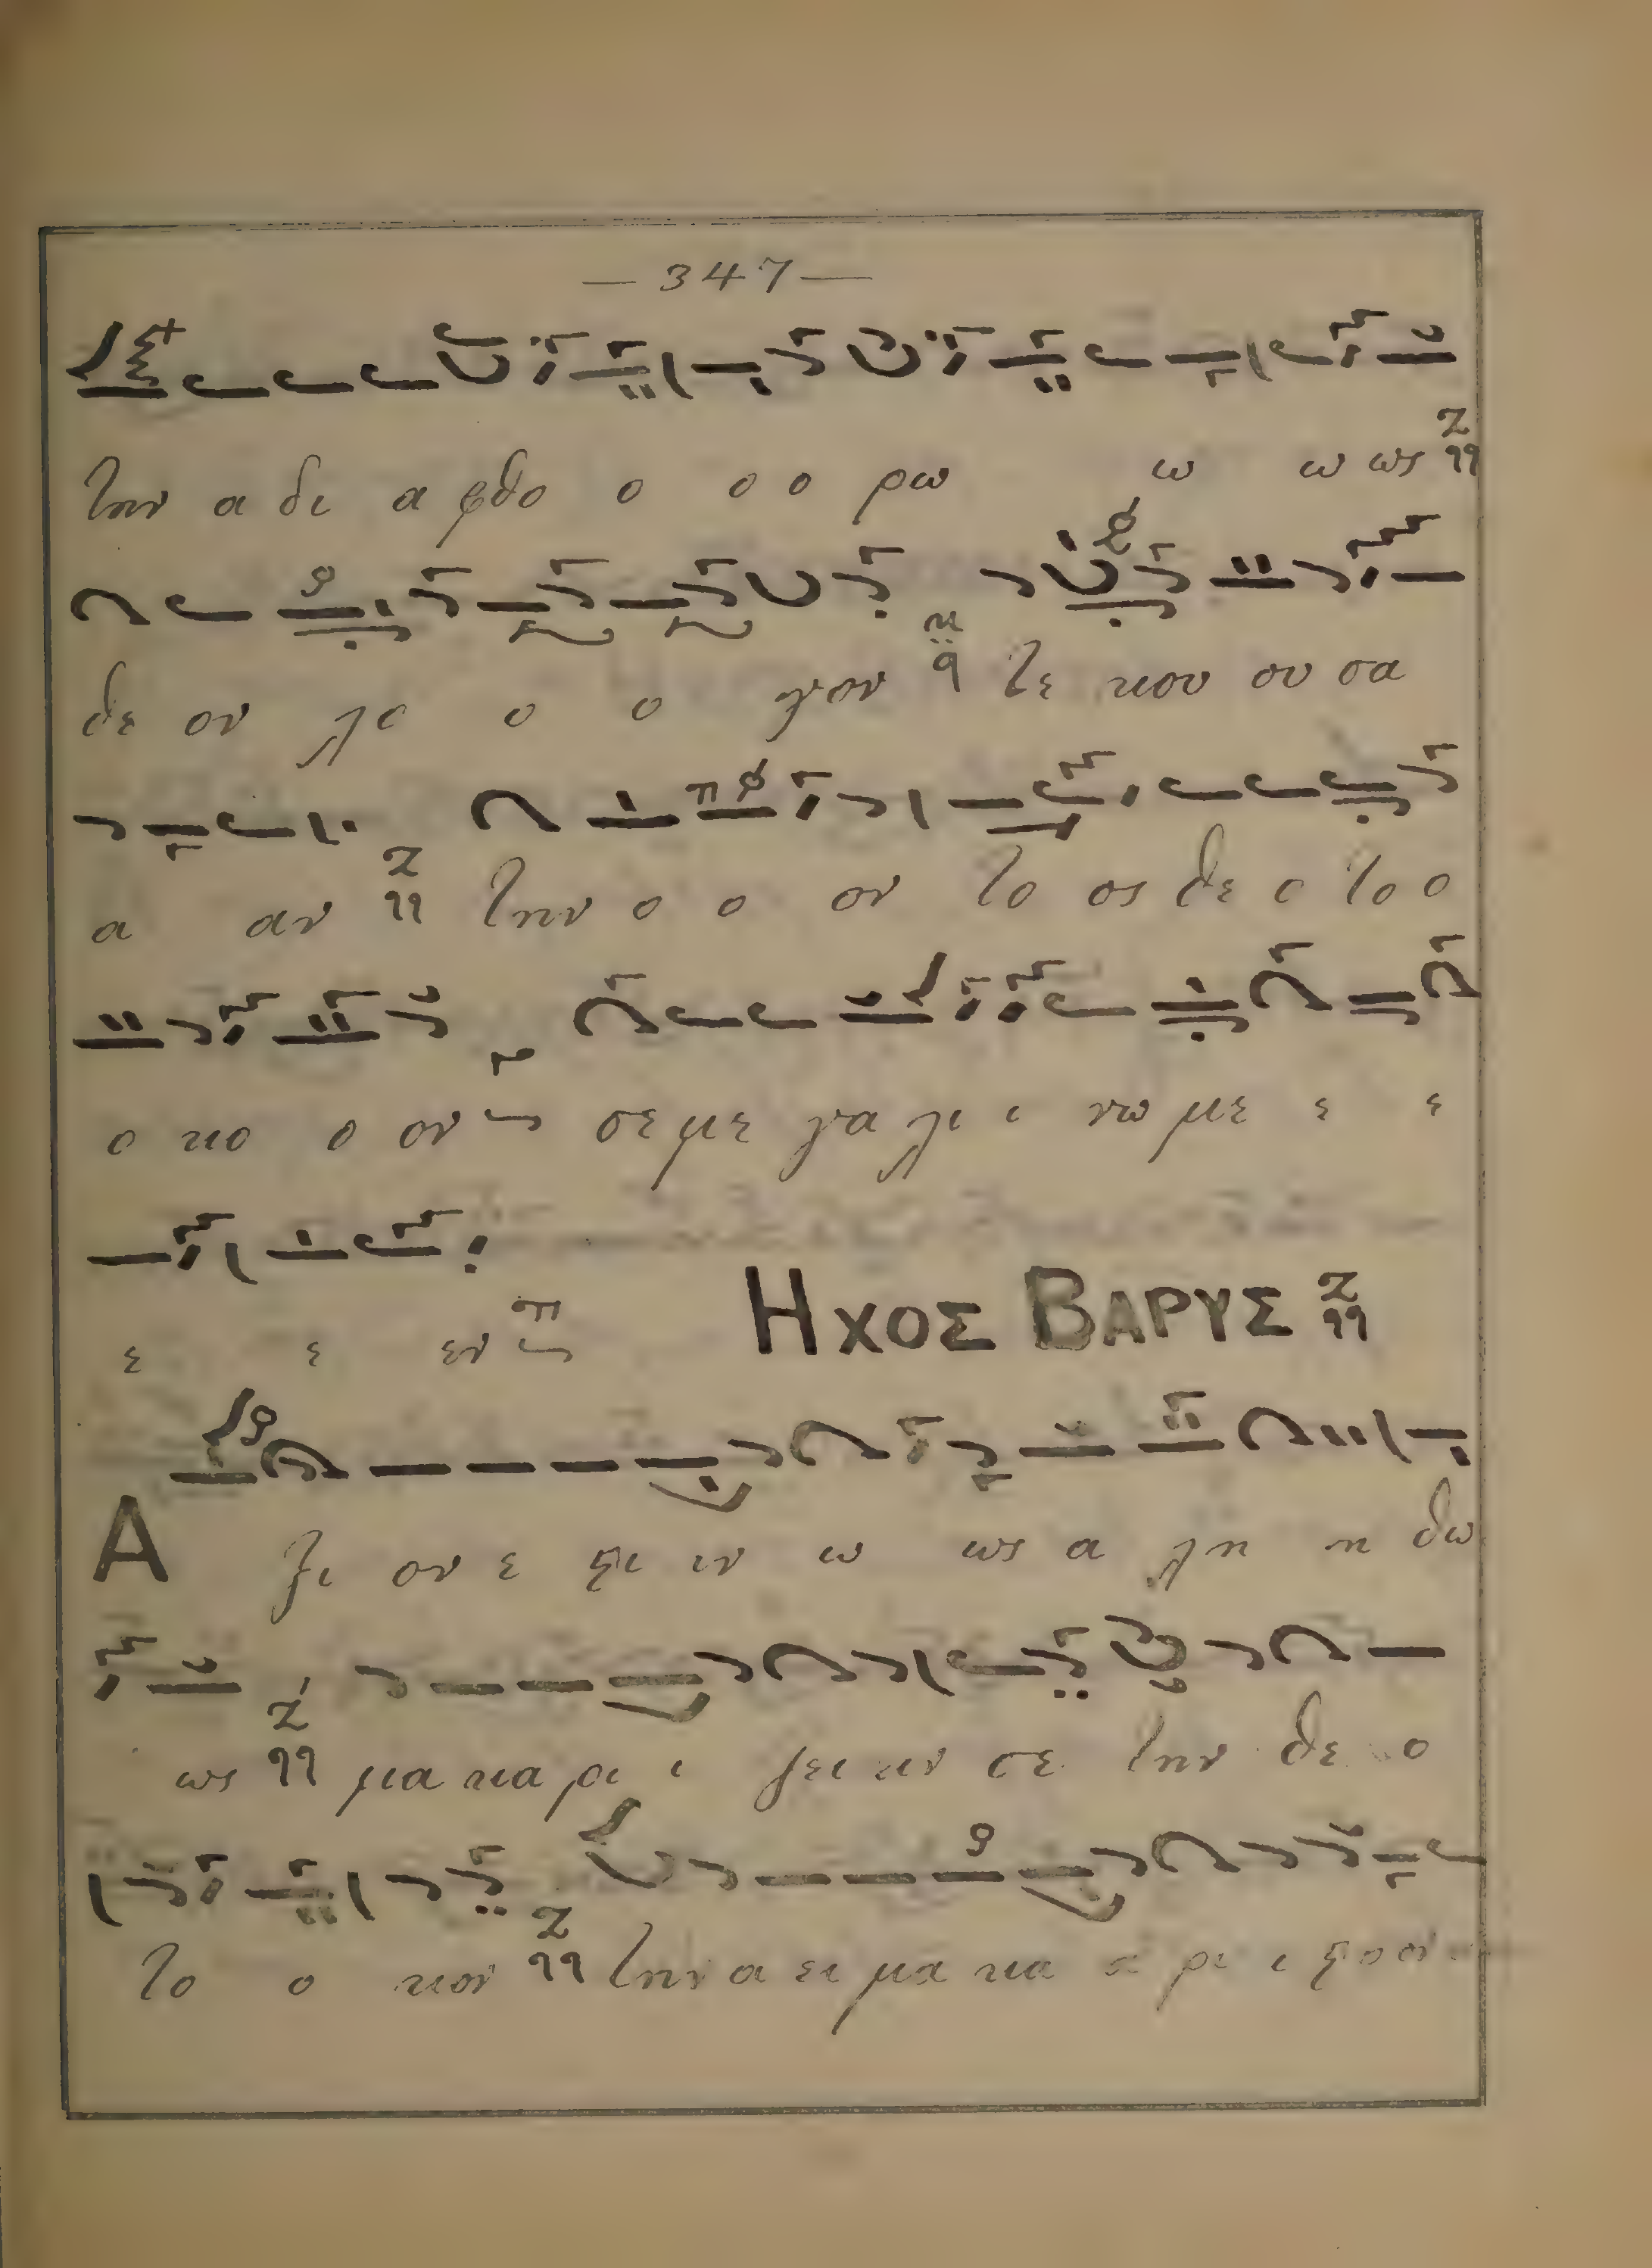 — 347 —
την α δι α φθο ο ο ο ρω ω ω ως Ζ
θε ον λο ο ο γον κ q τε κου ου σα
α αν Ζ την ο ο ον το ος θε ο το ο
ο κο ο ον σε με γα λι ι νω με ε ε
ε ε εν π ΗΧΟΣ ΒΑΡΥΣ Ζ
Α ξι ον ε πι ιν ω ως α λη η θω
ως Ζ μα κα ρι ι ζει ειν σε την θε ο
το ο κον Ζ την α ει μα κα α ρι ι